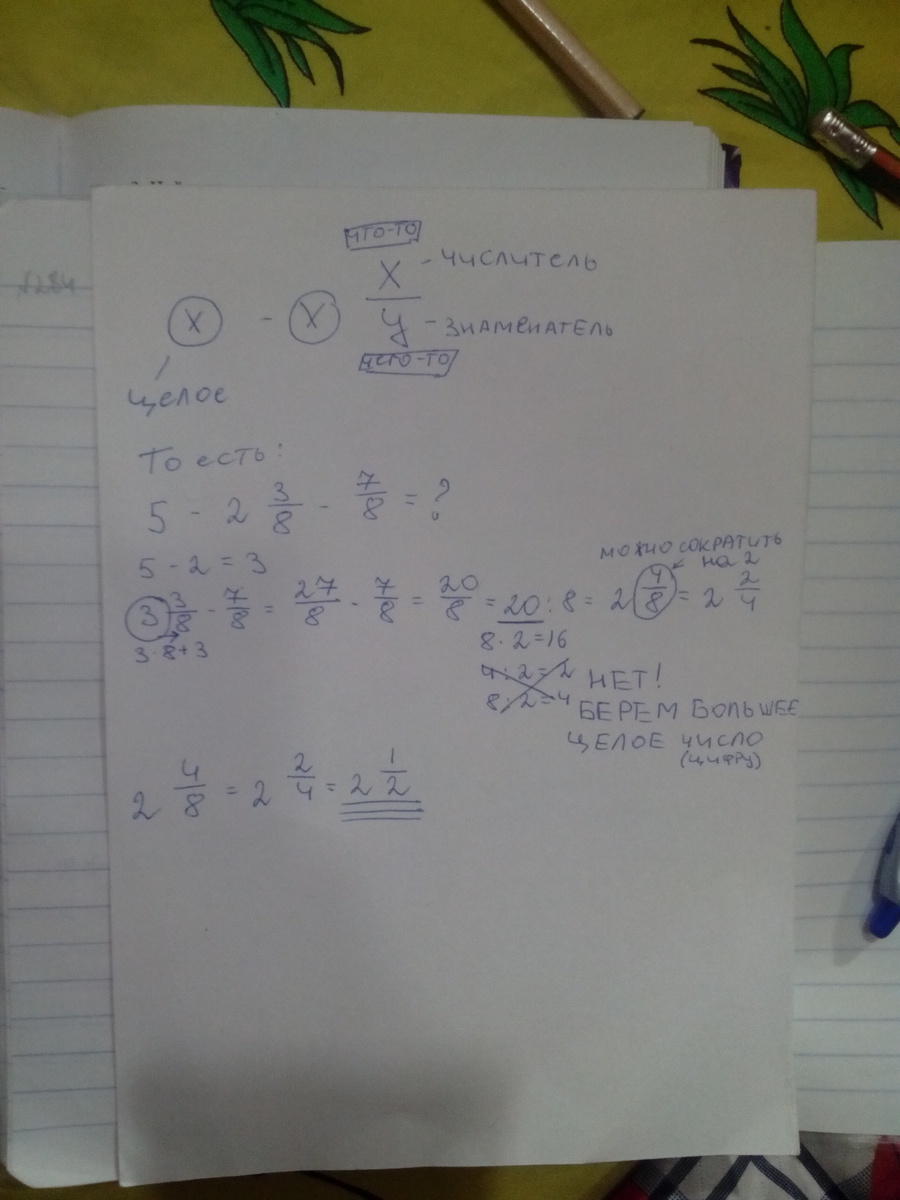 №284
ЧТО-ТО
X - ЧИСЛИТЕЛЬ
X - X
У - ЗНАМЕНАТЕЛЬ
ЧЕГО-ТО
ЦЕЛОЕ
То есть:
5 - 2 3/8 - 7/8 = ?
5 - 2 = 3
МОЖНО СОКРАТИТЬ
НА 2
3 3/8 - 7/8 = 27/8 - 7/8 = 20/8 = 20 : 8 = 2 4/8 = 2 2/4
3·8+3
8·2=16
4:2=2
8:2=4
НЕТ!
БЕРЕМ БОЛЬШЕЕ
ЦЕЛОЕ ЧИСЛО
(ЦИФРУ)
2 4/8 = 2 2/4 = 2 1/2